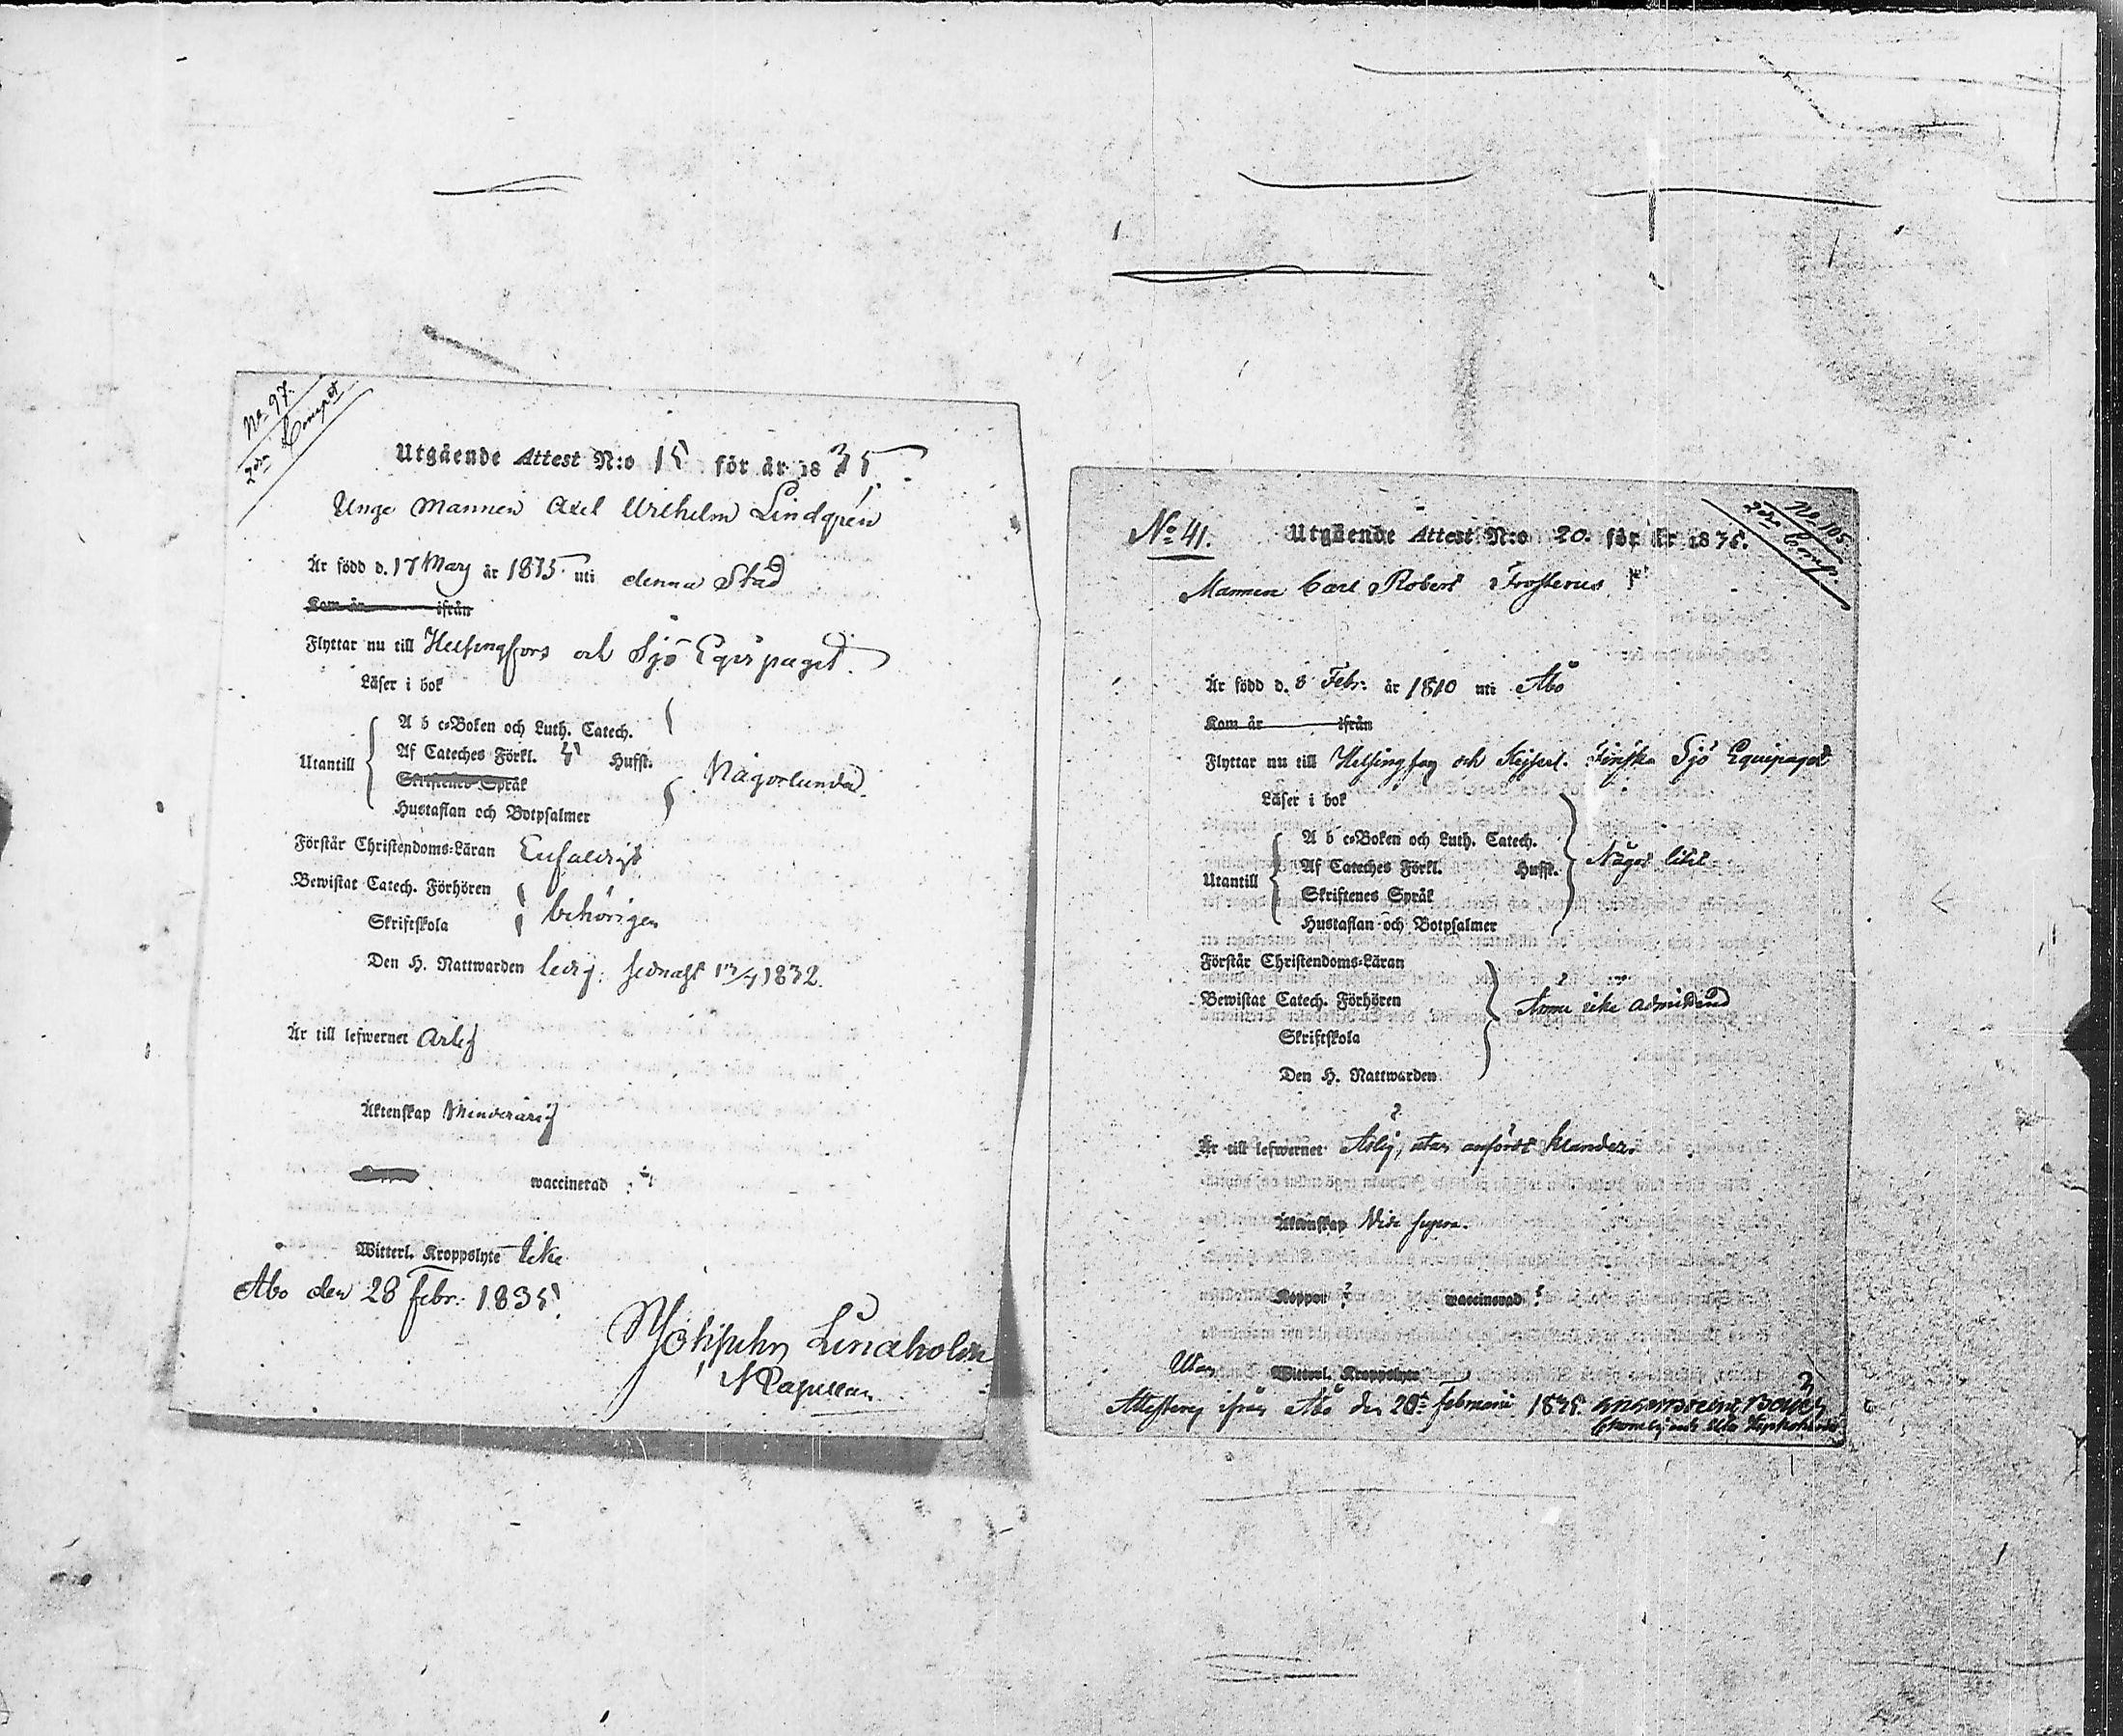 No 97.
2dra Comp:t
Utgående Attest N:o 15 för år 1835.
Unge Mannen Axel Wilhelm Lindgren
Är född d. 17 May år 1815 uti denna Stad
Kom år ifrån
Flyttar nu till Helsingfors och Sjö Equipaget.
Läser i bok
A b c-Boken och Luth. Catech.
Utantill Af Cateches Förkl. Husst. Någorlunda
Skriftenes Språk
Hustaflan och Botpsalmer
Förstår Christendoms-Läran Enfaldigt
Bewistat Catech. Förhören behörigen
Skriftskola
Den H. Nattwarden ledig: sednast 1832.
Är till lefwernet Ärlig
Äktenskap Minderårig
waccinerad
Witterl. Kroppslyte icke
Åbo den 28 Febr: 1835.
Lindholm
N Capellan
No 41.
No 105.
2dra Comp.
Utgående Attest N:o 20. för år 1835.
Mannen Carl Robert Frosterus
Är född d. 8 Febr. år 1810 uti Åbo
Kom år ifrån
Flyttar nu till Helsingfors och Kejserl. Finska Sjö Equipaget
Läser i bok
A b c-Boken och Luth. Catech.
Utantill Af Cateches Förkl. Husst. Något litet
Skriftenes Språk
Hustaflan och Botpsalmer
Förstår Christendoms-Läran
Bewistat Catech. Förhören Ännu icke admitterad
Skriftskola
Den H. Nattwarden
Är till lefwernet Ärlig, utan anfördt klander.
Äktenskap Vide supra.
Koppor ? waccinerad ?
Utan Witterl. Kroppslyte
Attesteras ifrån Åbo den 28de Februarii 1835.